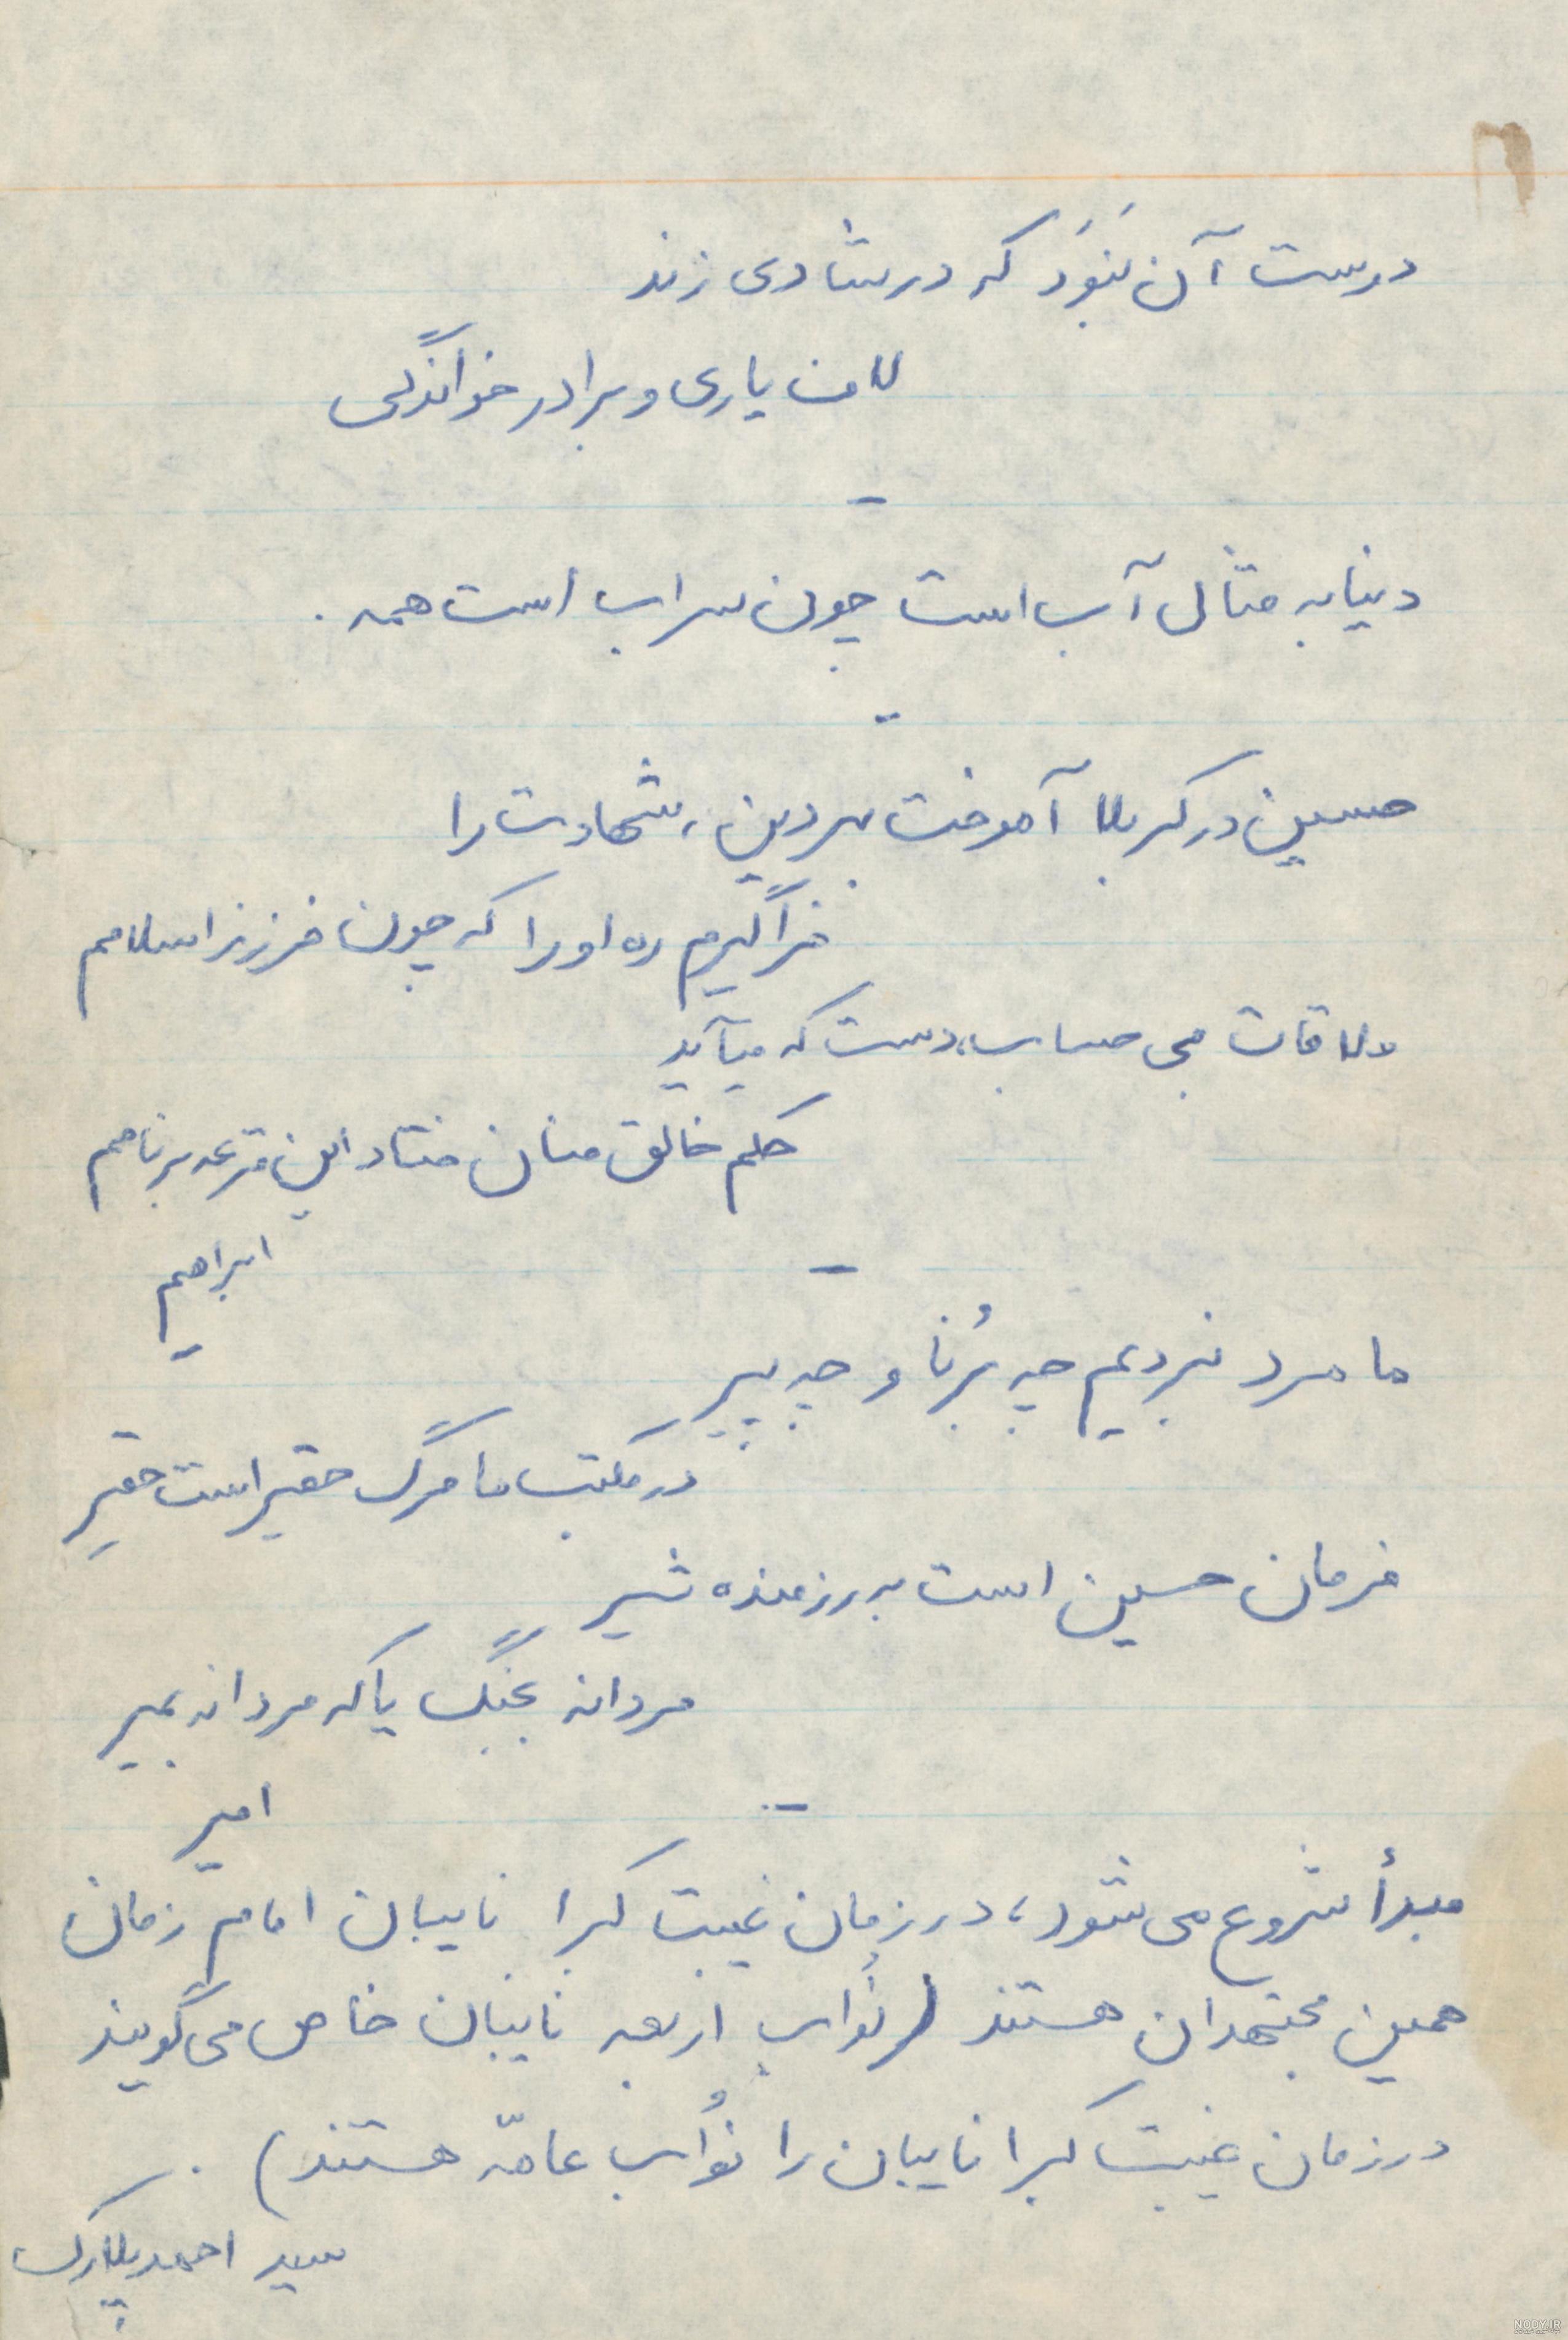 درست آن نَبَوَد که در شادی زند
لاف یاری و برادر خواندگی
-
دنیا به مثال آب است چون سراب است همه .
-
حسین در کربلا آموخت بهر دین، شهادت را
فراگیرم ره او را که چون فرزند اسلامم
ملاقات بی حساب دست که میآید
حکم خالق منان فتاد این قرعه بر نامم
ابراهیم
-
ما مرد نبردیم چه بُرنا و چه پیر
در مکتب ما مرگ حقیر است حقیرِ
فرمان حسین است به رزمنده شیر
مردانه بجنگ یا که مردانه بمیر
امیر
-
مبدأ شروع می شود، در زمان غیبت کبرا نایبان امام زمان
همین مجتهدان هستند (نُواب اربعه نایبان خاص می گویند
در زمان غیبت کبرا نایبان را نُواب عامّه هستند) .
سید احمد پلارک
NODY.IR